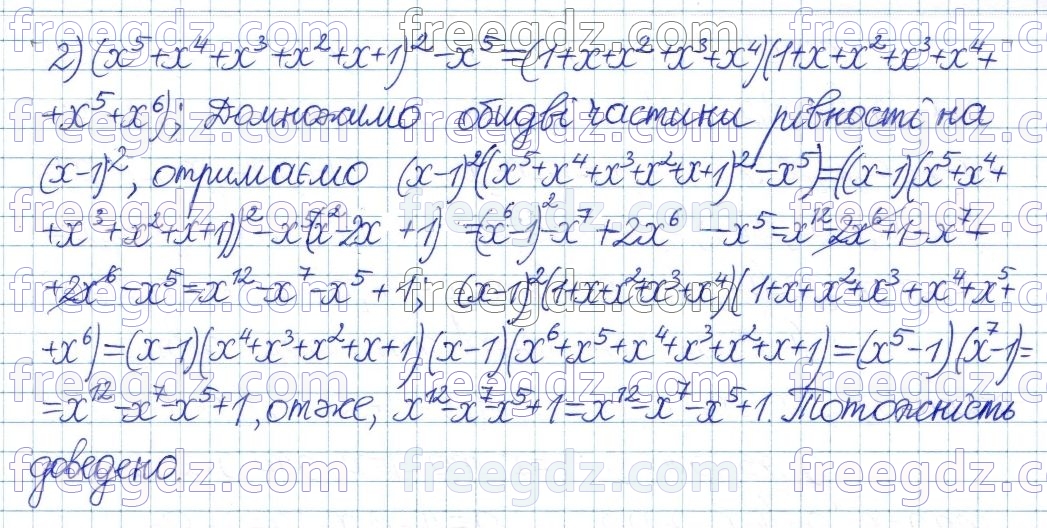 2) (x⁵+x⁴+x³+x²+x+1)²−x⁵=(1+x+x²+x³+x⁴)(1+x+x²+x³+x⁴+
+x⁵+x⁶); Домножимо обидві частини рівності на
(x-1)², отримаємо (x-1)²((x⁵+x⁴+x³+x²+x+1)²−x⁵)=((x-1)(x⁵+x⁴+
+x³+x²+x+1))²−x⁵(x²-2x+1)=(x⁶-1)²-x⁷+2x⁶−x⁵=x¹²-2x⁶+1-x⁷+
+2x⁶−x⁵=x¹²−x⁷−x⁵+1; (x-1)²(1+x+x²+x³+x⁴)(1+x+x²+x³+x⁴+x⁵+
+x⁶)=(x-1)(x⁴+x³+x²+x+1)(x-1)(x⁶+x⁵+x⁴+x³+x²+x+1)=(x⁵-1)(x⁷-1)=
=x¹²-x⁷-x⁵+1, отже, x¹²-x⁷-x⁵+1=x¹²-x⁷-x⁵+1. Тотожність
доведено.